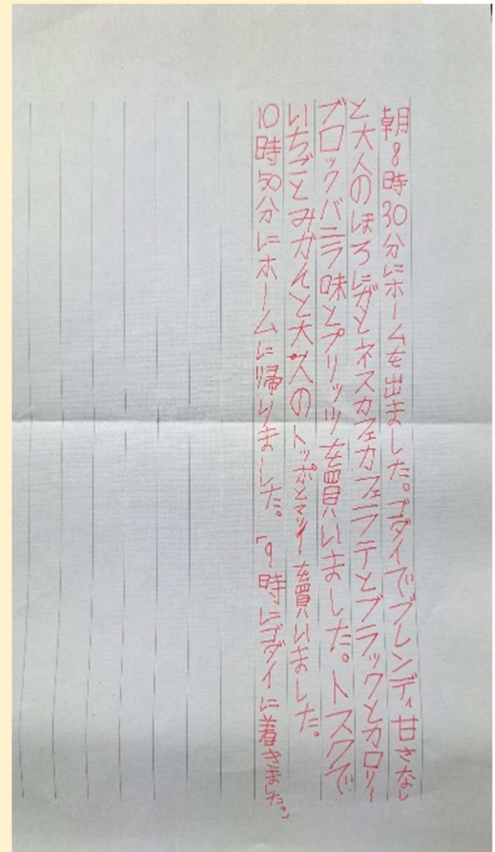 朝8時30分にホームを出ました。ゴダイでブレンディ甘さなし
と大人のほろにがとネスカフェカフェラテとブラックとカロリー
ブロックバニラ味とプリッツを買いました。トスクで
いちごとみかんと大人のトッポとマッチーを買いました。
10時50分にホームに帰りました。「9時にゴダイに着きました。」